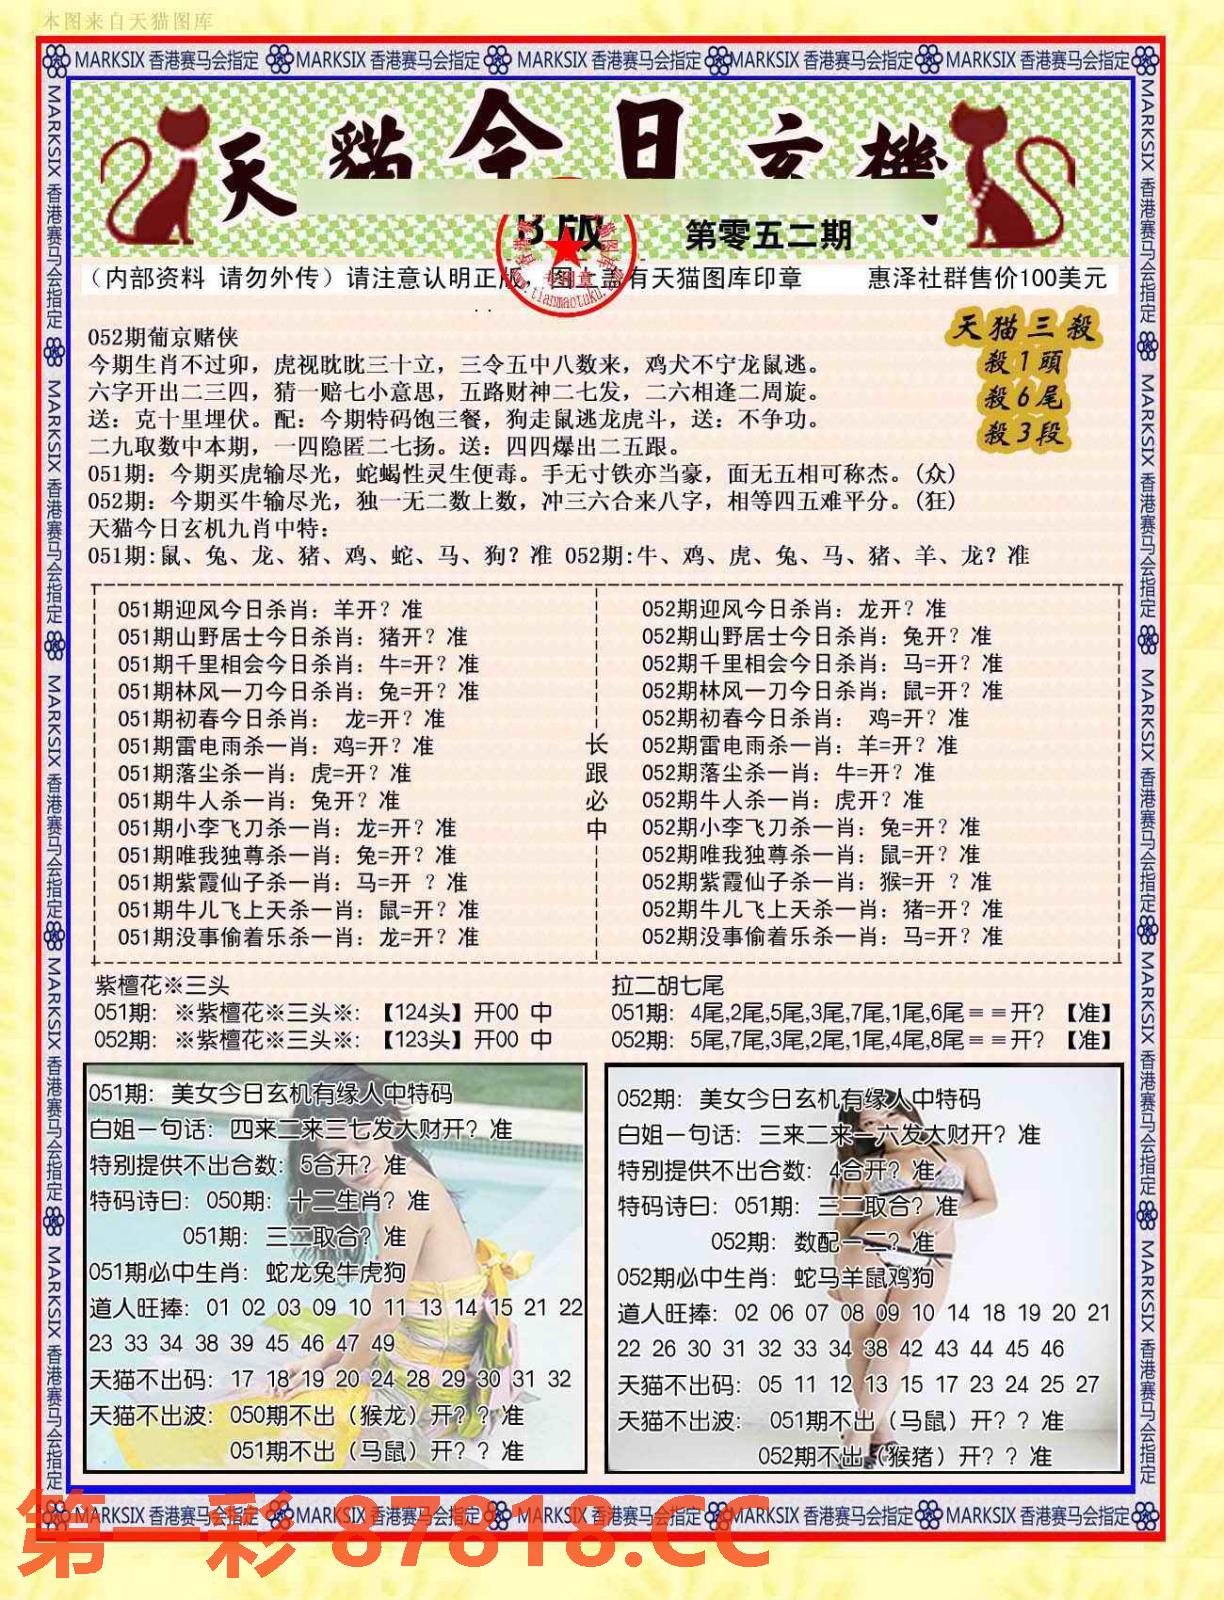 本图来自天猫图库
MARKSIX 香港赛马会指定 MARKSIX 香港赛马会指定 MARKSIX 香港赛马会指定 MARKSIX 香港赛马会指定 MARKSIX 香港赛马会指定
MARKSIX 香港赛马会指定 MARKSIX 香港赛马会指定 MARKSIX 香港赛马会指定 MARKSIX 香港赛马会指定 MARKSIX 香港赛马会指定
MARKSIX 香港赛马会指定 MARKSIX 香港赛马会指定 MARKSIX 香港赛马会指定 MARKSIX 香港赛马会指定 MARKSIX 香港赛马会指定
天貓今日玄機
B版
第零五二期
（内部资料 请勿外传）请注意认明正版 图上盖有天猫图库印章
惠泽社群售价100美元
www.tianmaotuku.
天猫三殺
殺1頭
殺6尾
殺3段
052期葡京赌侠
今期生肖不过卯，虎视眈眈三十立，三令五中八数来，鸡犬不宁龙鼠逃。
六字开出二三四，猜一赔七小意思，五路财神二七发，二六相逢二周旋。
送：克十里埋伏。配：今期特码饱三餐，狗走鼠逃龙虎斗，送：不争功。
二九取数中本期，一四隐匿二七扬。送：四四爆出二五跟。
051期：今期买虎输尽光，蛇蝎性灵生便毒。手无寸铁亦当豪，面无五相可称杰。(众)
052期：今期买牛输尽光，独一无二数上数，冲三六合来八字，相等四五难平分。(狂)
天猫今日玄机九肖中特：
051期:鼠、兔、龙、猪、鸡、蛇、马、狗？准 052期:牛、鸡、虎、兔、马、猪、羊、龙？准
051期迎风今日杀肖：羊开？准
051期山野居士今日杀肖：猪开？准
051期千里相会今日杀肖：牛=开？准
051期林风一刀今日杀肖：兔=开？准
051期初春今日杀肖： 龙=开？准
051期雷电雨杀一肖：鸡=开？准
051期落尘杀一肖：虎=开？准
051期牛人杀一肖：兔开？准
051期小李飞刀杀一肖：龙=开？准
051期唯我独尊杀一肖：兔=开？准
051期紫霞仙子杀一肖：马=开 ？准
051期牛儿飞上天杀一肖：鼠=开？准
051期没事偷着乐杀一肖：龙=开？准
长跟必中
052期迎风今日杀肖：龙开？准
052期山野居士今日杀肖：兔开？准
052期千里相会今日杀肖：马=开？准
052期林风一刀今日杀肖：鼠=开？准
052期初春今日杀肖： 鸡=开？准
052期雷电雨杀一肖：羊=开？准
052期落尘杀一肖：牛=开？准
052期牛人杀一肖：虎开？准
052期小李飞刀杀一肖：兔=开？准
052期唯我独尊杀一肖：鼠=开？准
052期紫霞仙子杀一肖：猴=开 ？准
052期牛儿飞上天杀一肖：猪=开？准
052期没事偷着乐杀一肖：马=开？准
紫檀花※三头
051期：※紫檀花※三头※：【124头】开00 中
052期：※紫檀花※三头※：【123头】开00 中
拉二胡七尾
051期：4尾,2尾,5尾,3尾,7尾,1尾,6尾＝＝开？【准】
052期：5尾,7尾,3尾,2尾,1尾,4尾,8尾＝＝开？【准】
051期：美女今日玄机有缘人中特码
白姐一句话：四来二来三七发大财开？准
特别提供不出合数：5合开？准
特码诗曰：050期：十二生肖？准
051期：三二取合？准
051期必中生肖：蛇龙兔牛虎狗
道人旺捧：01 02 03 09 10 11 13 14 15 21 22
23 33 34 38 39 45 46 47 49
天猫不出码：17 18 19 20 24 28 29 30 31 32
天猫不出波：050期不出（猴龙）开？？准
051期不出（马鼠）开？？准
052期：美女今日玄机有缘人中特码
白姐一句话：三来二来一六发大财开？准
特别提供不出合数：4合开？准
特码诗曰：051期：三二取合？准
052期：数配一二？准
052期必中生肖：蛇马羊鼠鸡狗
道人旺捧：02 06 07 08 09 10 14 18 19 20 21
22 26 30 31 32 33 34 38 42 43 44 45 46
天猫不出码：05 11 12 13 15 17 23 24 25 27
天猫不出波： 051期不出（马鼠）开？？准
052期不出（猴猪）开？？准
MARKSIX 香港赛马会指定 MARKSIX 香港赛马会指定 MARKSIX 香港赛马会指定 MARKSIX 香港赛马会指定 MARKSIX 香港赛马会指定
第一彩 87818.CC